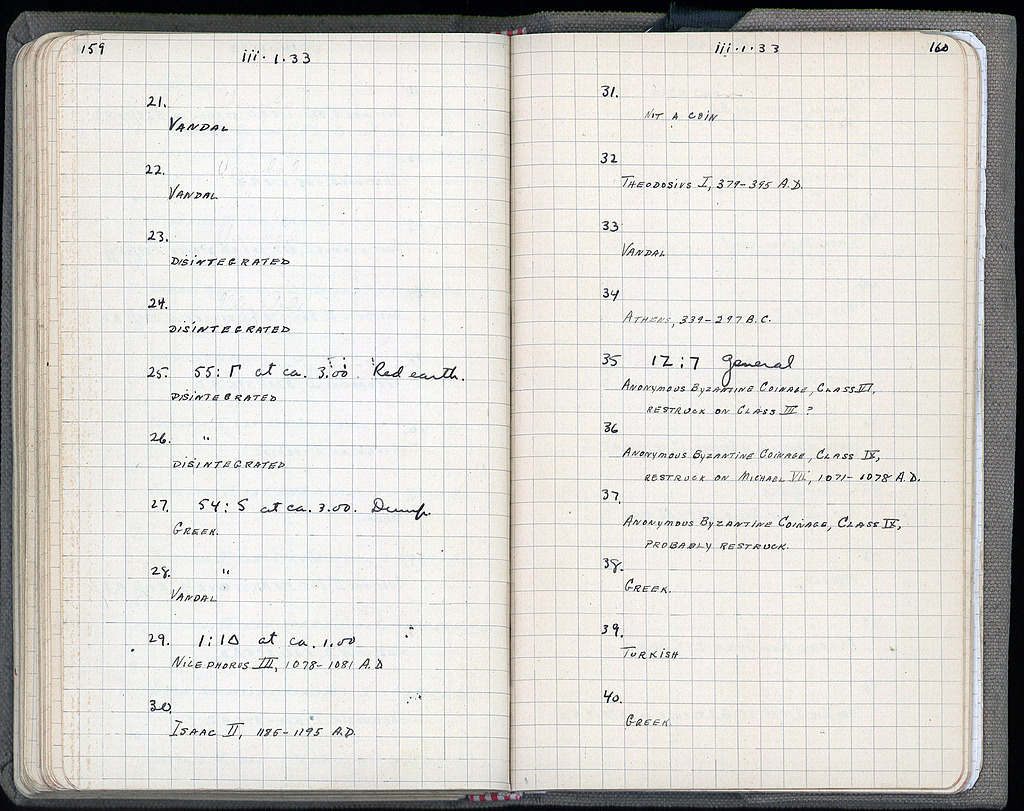 159
iii·1·33
21.
VANDAL
22.
VANDAL
23.
DISINTEGRATED
24.
DISINTEGRATED
25. 55:Γ at ca. 3.00. Red earth.
DISINTEGRATED
26. "
DISINTEGRATED
27. 54:S at ca. 3.00. Dump.
GREEK.
28. "
VANDAL
29. 1:1Δ at ca. 1.00
NICEPHORUS III, 1078-1081 A.D
30.
ISAAC II, 1185-1195 A.D.
iii·1·33
160
31.
NOT A COIN
32
THEODOSIUS I, 379-395 A.D.
33
VANDAL
34
ATHENS, 339-297 B.C.
35 12:7 general
ANONYMOUS BYZANTINE COINAGE, CLASS VI,
RESTRUCK ON CLASS III ?
36
ANONYMOUS BYZANTINE COINAGE, CLASS IX,
RESTRUCK ON MICHAEL VII, 1071-1078 A.D.
37.
ANONYMOUS BYZANTINE COINAGE, CLASS IX,
PROBABLY RESTRUCK.
38.
GREEK.
39.
TURKISH
40.
GREEK